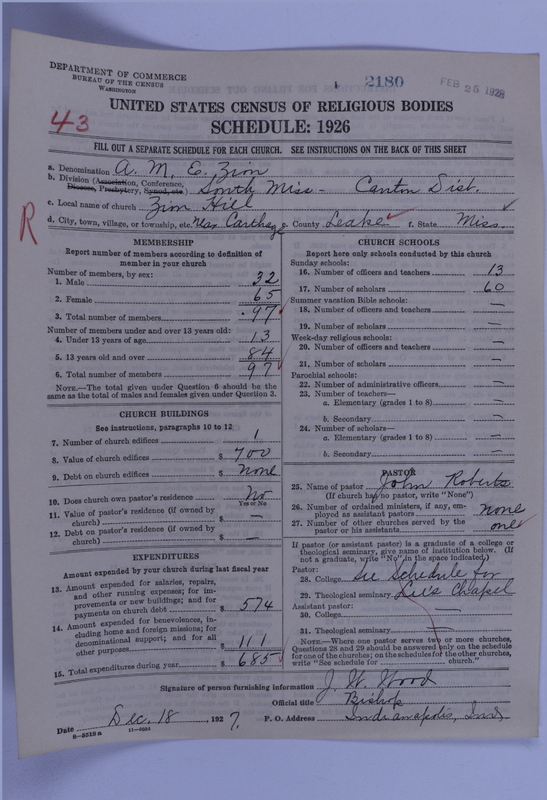 DEPARTMENT OF COMMERCE
BUREAU OF THE CENSUS
WASHINGTON
2180
FEB 25 1928
43
UNITED STATES CENSUS OF RELIGIOUS BODIES
SCHEDULE: 1926
FILL OUT A SEPARATE SCHEDULE FOR EACH CHURCH. SEE INSTRUCTIONS ON THE BACK OF THIS SHEET
a. Denomination A. M. E. Zion
b. Division (Association, Conference, Diocese, Presbytery, Synod, etc.) South Miss - Canton Dist.
c. Local name of church Zion Hill
R
d. City, town, village, or township, etc. Near Carthage e. County Leake f. State Miss.
MEMBERSHIP
Report number of members according to definition of member in your church
Number of members, by sex:
1. Male 32
2. Female 65
3. Total number of members 97
Number of members under and over 13 years old:
4. Under 13 years of age 13
5. 13 years old and over 84
6. Total number of members 97
NOTE.—The total given under Question 6 should be the same as the total of males and females given under Question 3.
CHURCH BUILDINGS
See instructions, paragraphs 10 to 12
7. Number of church edifices 1
8. Value of church edifices $ 700
9. Debt on church edifices $ None
10. Does church own pastor's residence No
Yes or No
11. Value of pastor's residence (if owned by church) $ —
12. Debt on pastor's residence (if owned by church) $ —
EXPENDITURES
Amount expended by your church during last fiscal year
13. Amount expended for salaries, repairs, and other running expenses; for improvements or new buildings; and for payments on church debt $ 574
14. Amount expended for benevolences, including home and foreign missions; for denominational support; and for all other purposes $ 111
15. Total expenditures during year $ 685
CHURCH SCHOOLS
Report here only schools conducted by this church
Sunday schools:
16. Number of officers and teachers 13
17. Number of scholars 60
Summer vacation Bible schools:
18. Number of officers and teachers —
19. Number of scholars —
Week-day religious schools:
20. Number of officers and teachers —
21. Number of scholars —
Parochial schools:
22. Number of administrative officers —
23. Number of teachers—
a. Elementary (grades 1 to 8) —
b. Secondary —
24. Number of scholars—
a. Elementary (grades 1 to 8) —
b. Secondary —
PASTOR
25. Name of pastor John Roberts
(If church has no pastor, write "None")
26. Number of ordained ministers, if any, employed as assistant pastors None
27. Number of other churches served by the pastor or his assistants one
If pastor (or assistant pastor) is a graduate of a college or theological seminary, give name of institution below. (If not a graduate, write "No" in the space indicated.)
Pastor:
28. College See Schedule for
29. Theological seminary Lee's Chapel
Assistant pastor:
30. College —
31. Theological seminary —
NOTE.—Where one pastor serves two or more churches, Questions 28 and 29 should be answered only on the schedule for one of the churches; on the schedules for the other churches, write "See schedule for church."
Signature of person furnishing information J. W. Wood
Official title Bishop
Date Dec. 18, 1927. P. O. Address Indianapolis, Ind.
8-5518 a 11-9034